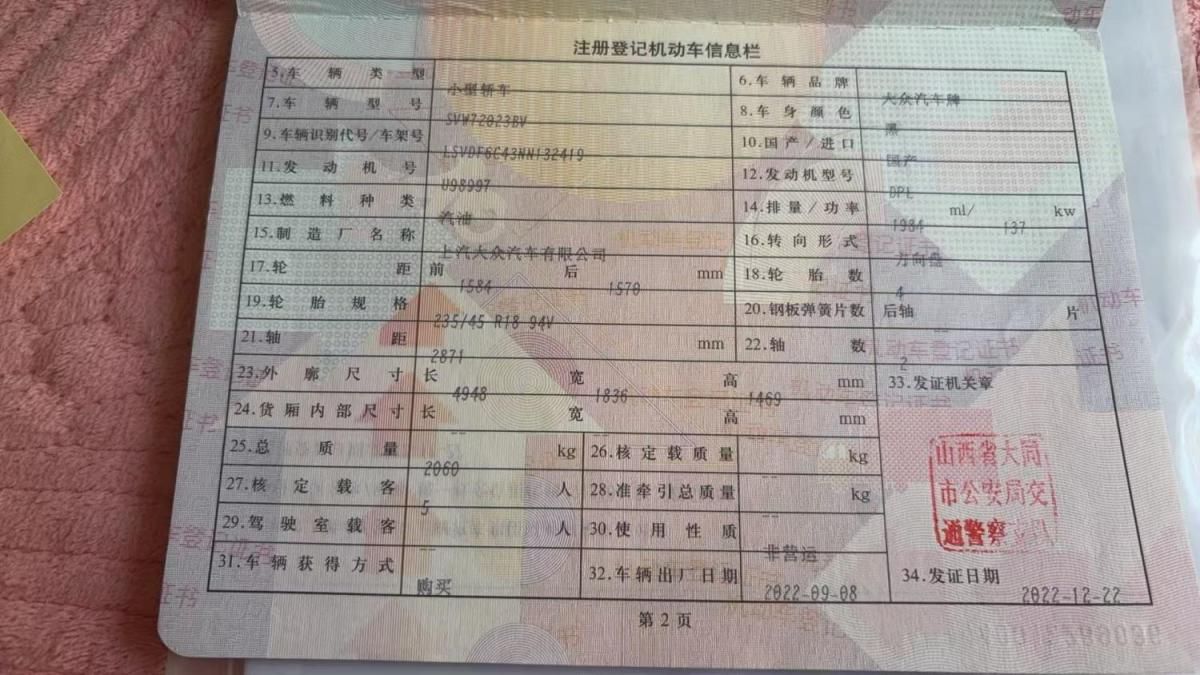 注册登记机动车信息栏
5.车辆类型 小型轿车 6.车辆品牌 大众汽车牌
7.车辆型号 SVW72023BV 8.车身颜色 黑
9.车辆识别代号/车架号 LSVDF6C43NN132419 10.国产/进口 国产
11.发动机号 U98997 12.发动机型号 DPL
13.燃料种类 汽油 14.排量/功率 1984 ml/ 137 kw
15.制造厂名称 上汽大众汽车有限公司 16.转向形式 方向盘
17.轮距 前 1584 后 1570 mm 18.轮胎数 4
19.轮胎规格 235/45 R18 94V 20.钢板弹簧片数 后轴 -- 片
21.轴距 2871 mm 22.轴数 2
23.外廓尺寸 长 4948 宽 1836 高 1469 mm 33.发证机关章
24.货厢内部尺寸 长 -- 宽 -- 高 -- mm
25.总质量 2060 kg 26.核定载质量 -- kg
27.核定载客 5 人 28.准牵引总质量 -- kg
29.驾驶室载客 -- 人 30.使用性质 非营运
31.车辆获得方式 购买 32.车辆出厂日期 2022-09-08 34.发证日期 2022-12-22
山西省大同
市公安局交
通警察支队
第2页